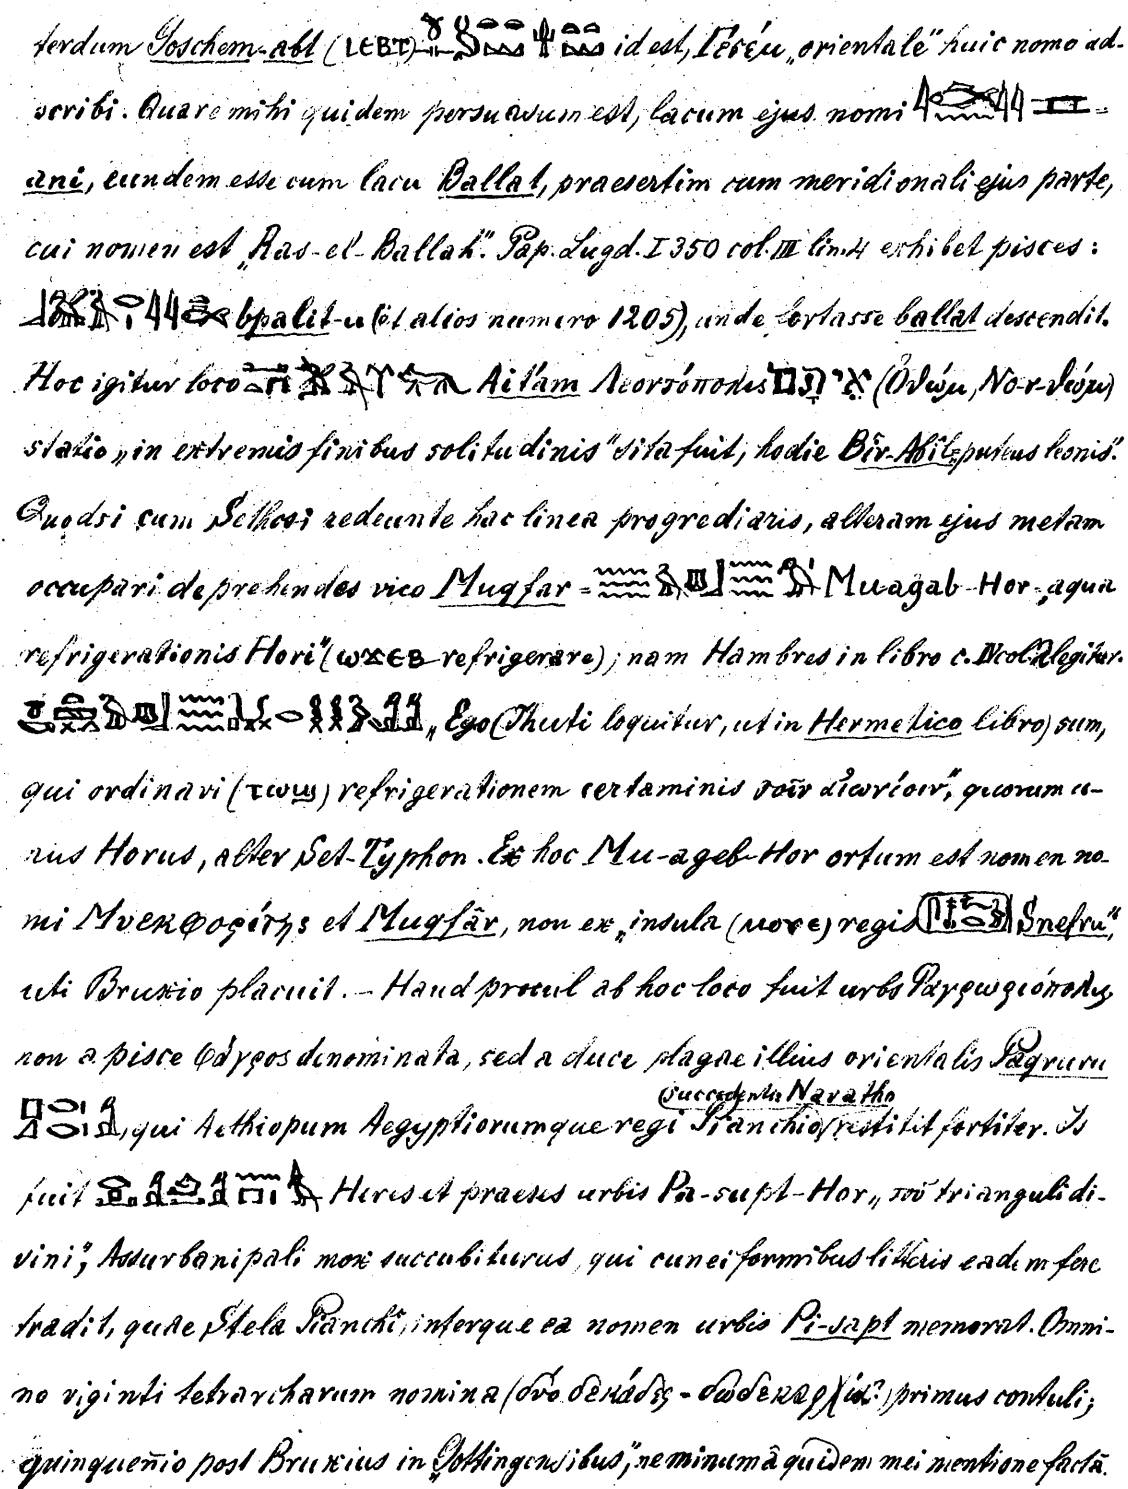 terdum Goschem-abt (ⲓⲉⲃⲧ) id est, Γεσέμ „orientale" huic nomo ad-
scribi. Quare mihi quidem persuasum est, lacum ejus nomi =
ani, eundem esse cum lacu Ballat, praesertim cum meridionali ejus parte,
cui nomen est „Ras-el-Ballah". Pap. Lugd. I 350 col. III lin. 4 exhibet pisces:
bpalit-u (et alios numero 1205), unde fortasse ballat descendit.
Hoc igitur loco Aitam Λεοντόπολις (Ὀθώμ, Νο-ν-θώμ)
statio „in extremis finibus solitudinis" sita fuit, hodie Bîr-Abû puteus leonis".
Quodsi cum Sethosi redeunte hac linea progrediaris, alteram ejus metam
occupari deprehendes vico Muqfar = Muagab-Hor „aqua
refrigerationis Hori" (ⲱϫⲉⲃ refrigerare); nam Hambres in libro c. IV col. 2 legitur.
„Ego (Thuti loquitur, ut in Hermetico libro) sum,
qui ordinavi (ⲧⲱϣ) refrigerationem certaminis τοῖν", quorum u-
nus Horus, alter Set-Typhon. Ex hoc Mu-ageb-Hor ortum est nomen no-
mi Μυεκφορίτης et Muqfâr, non ex „insula (ⲙⲟⲩⲉ) regis Snefru",
uti Bruxio placuit. – Haud procul ab hoc loco fuit urbs Φαγρωριόπολις,
non a pisce φάγρος denominata, sed a duce plagae illius orientalis Paqruru
(succedentis Naratho
, qui Aethiopum Aegyptiorumque regi Pianchio restitit fortiter. Is
fuit Heres et praeses urbis Pa-supt-Hor „τοῦ trianguli di-
vini", Assurbanipali mox succubiturus, qui cuneiformibus litteris eadem fere
tradit, quae Stela Pianchî, interque ea nomen urbis Pi-sapt memorat. Omni-
no viginti tetrarcharum nomina (δύο δεκάδες = primus contuli;
quinquen̄io post Bruxius in „Gottingensibus", ne minumâ quidem mei mentione factâ.